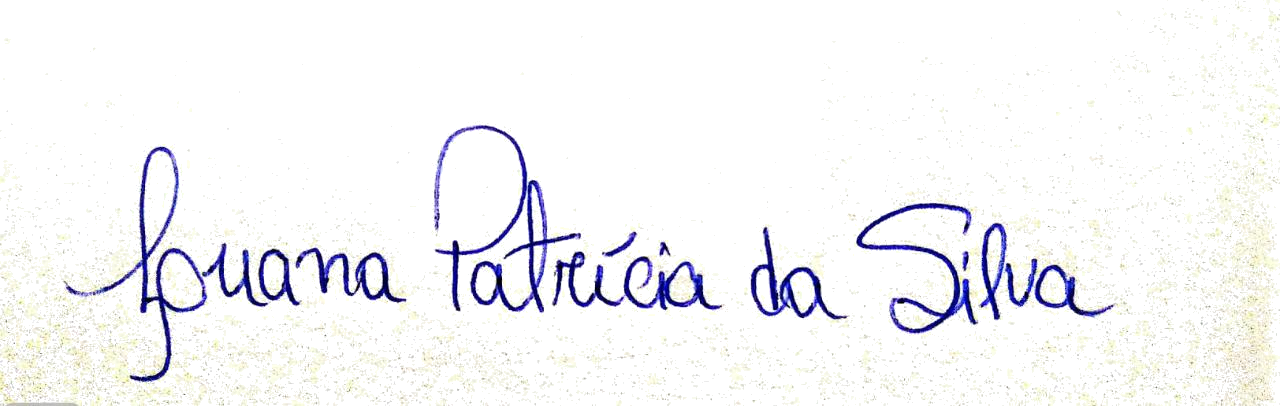 Louana Patrícia da Silva